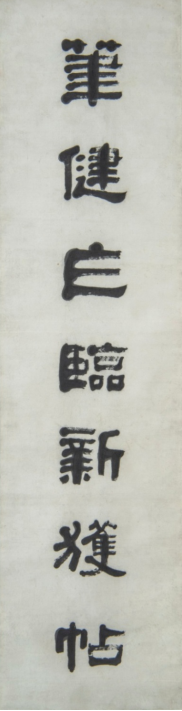 筆健自臨新獲帖